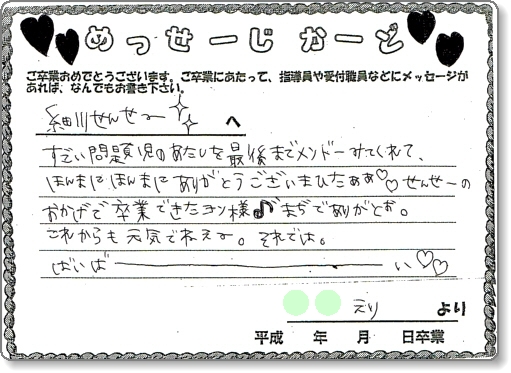 めっせーじ かーど
ご卒業おめでとうございます。ご卒業にあたって、指導員や受付職員などにメッセージが
あれば、なんでもお書き下さい。
細川せんせー へ
すごい問題児のあたしを最後までメンドーみてくれて、
ほんまにほんまにありがとうございまひたぁぁ♡♡せんせーの
おかげで卒業できたヨン様♪まぢでありがとお。
これからも元気でねぇー。それでは。
ばいば――――――い♡♡
えり より
平成 年 月 日卒業